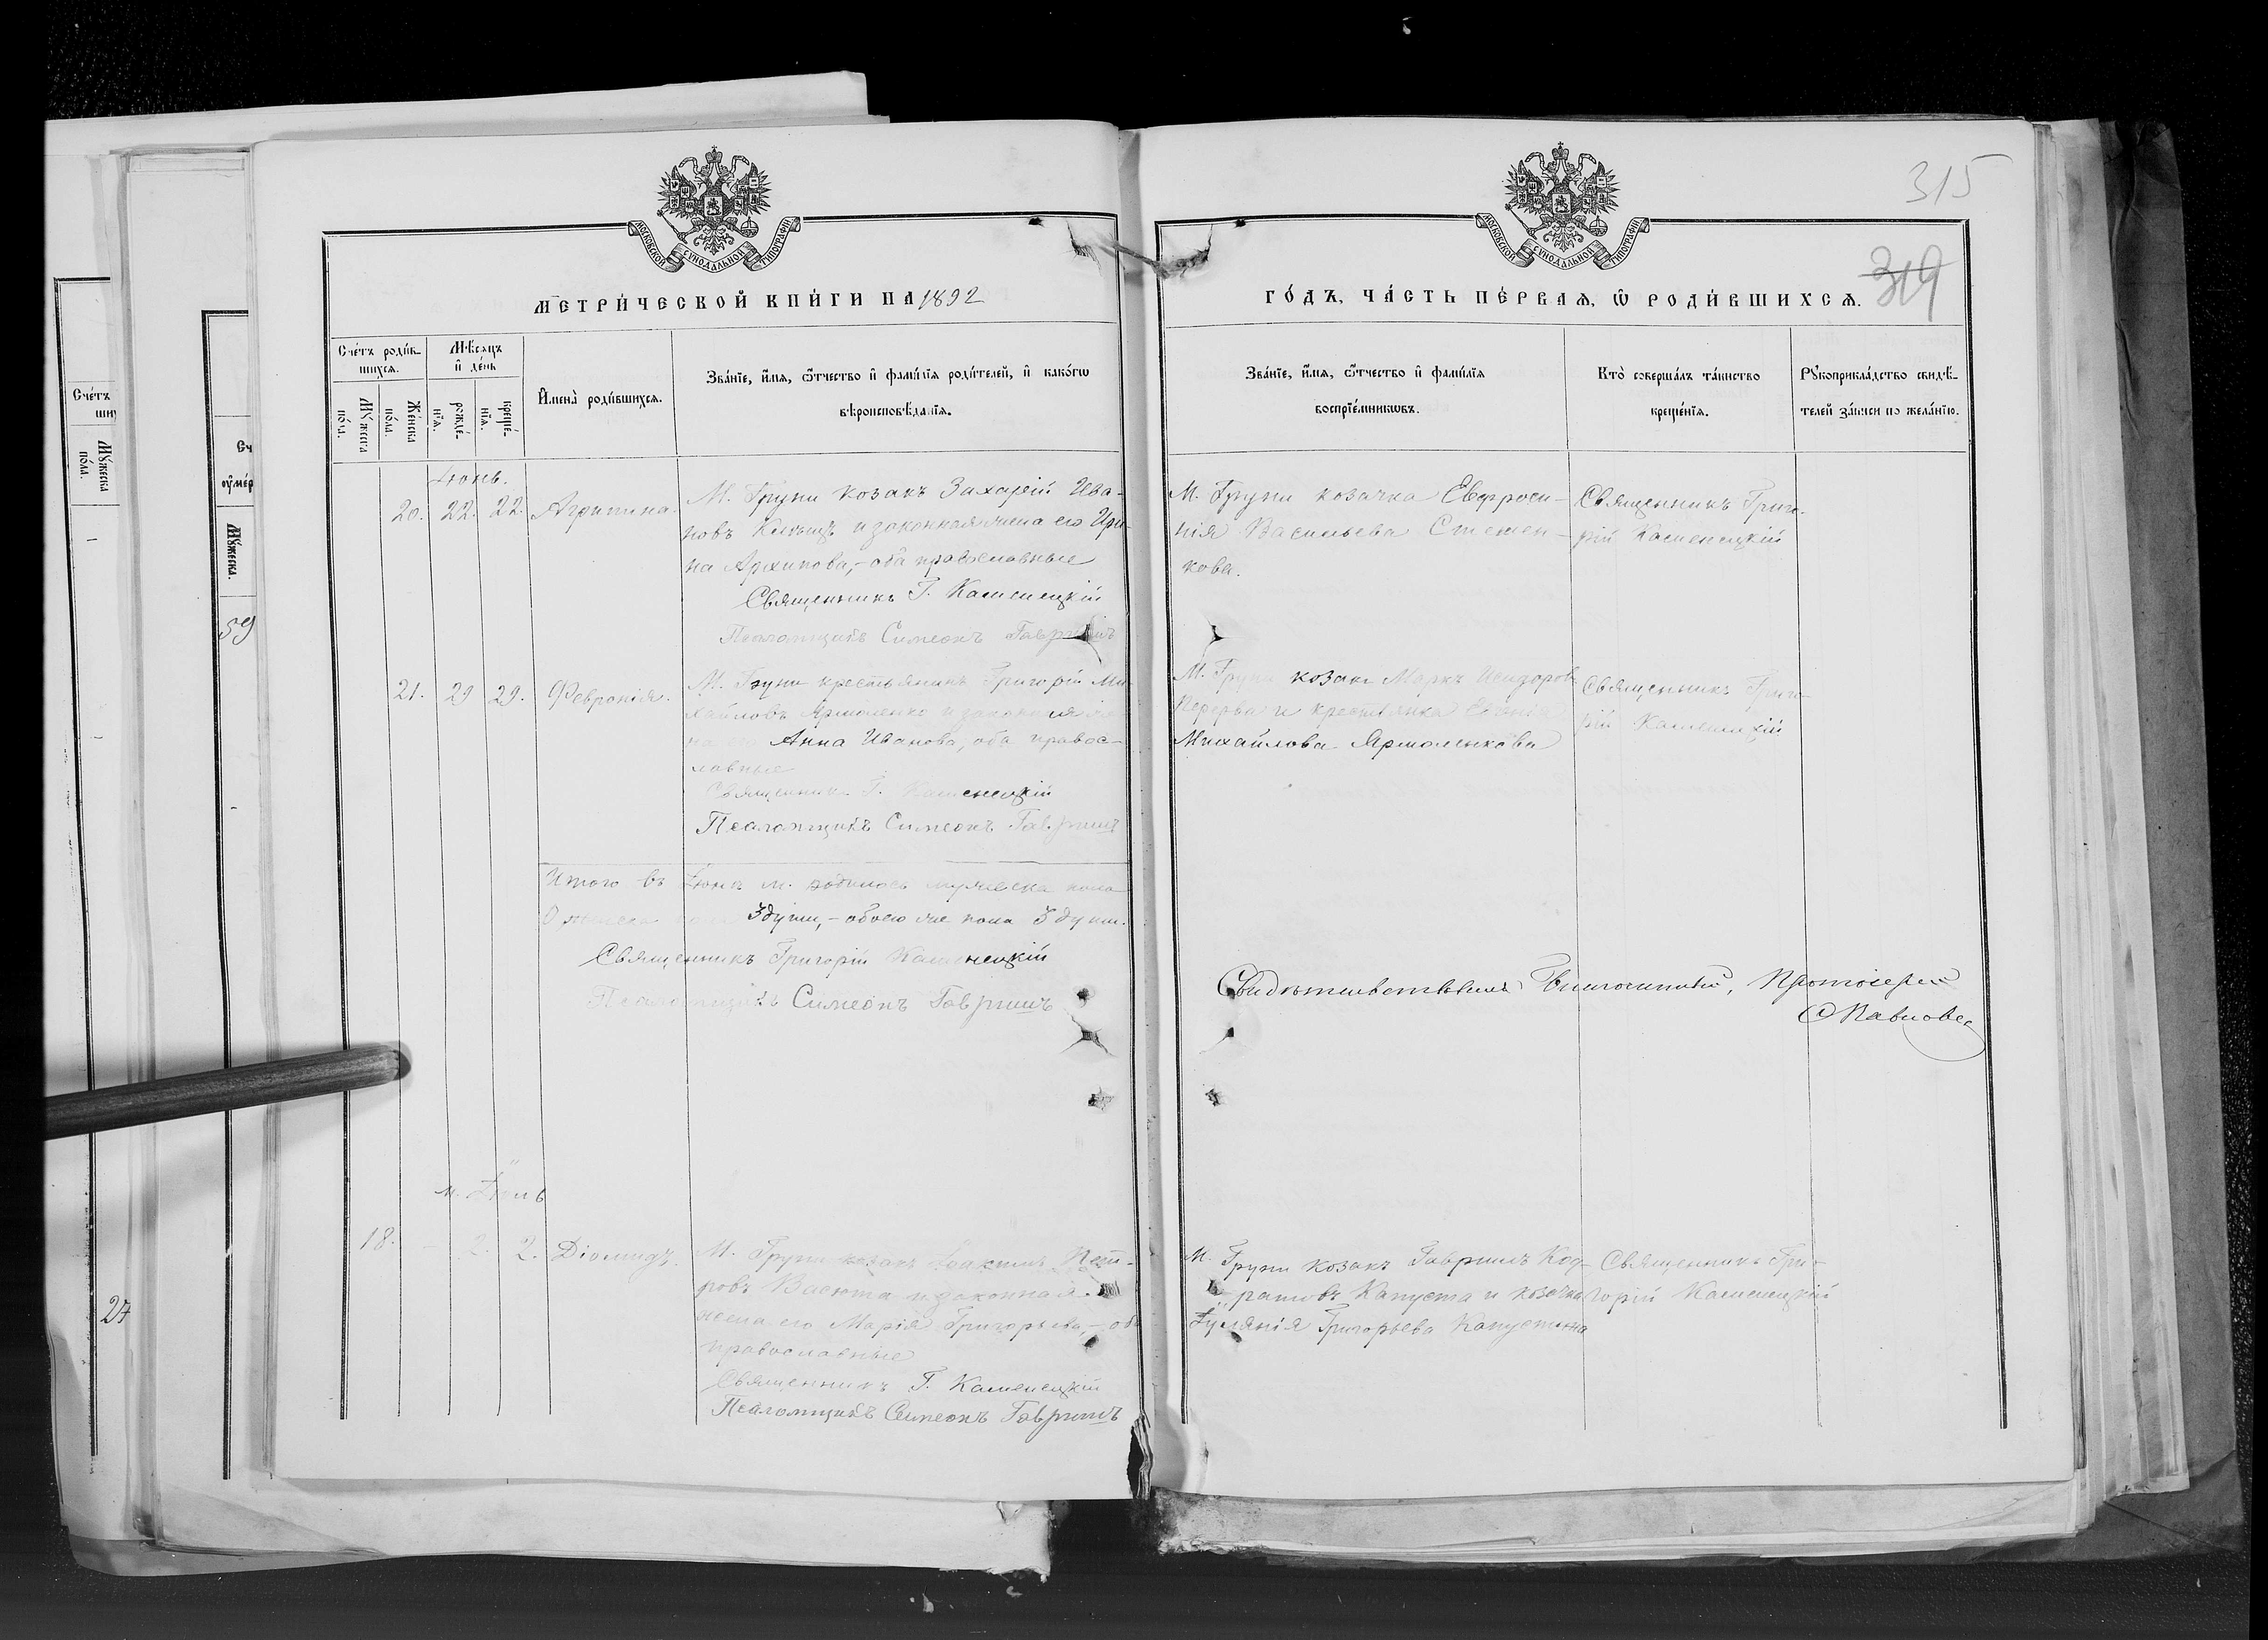 315
319
МОСКОВСКОЙ СѴНОДАЛЬНОЙ ТИПОГРАФІИ
МОСКОВСКОЙ СѴНОДАЛЬНОЙ ТИПОГРАФІИ
МЕТРИ́ЧЕСКОЙ КНИ́ГИ НА 1892
ГО́ДЪ, ЧА́СТЬ ПЕ́РВАЯ, Ѡ РОДИ́ВШИХСѦ.
Сче́тъ роди́в-
шихся.
Мѣ́сяцъ
и҆ де́нь
Мꙋ́жеска
по́ла.
Же́нска
по́ла.
рожде́-
нїя.
креще́-
нїя.
И҆мена̀ роди́вшихся.
Зва́нїе, и҆́мя, ѻ҆́тчество и҆ фамі́лїя роди́телей, и҆ како́гѡ
вѣроисповѣ́данїя.
Зва́нїе, и҆́мя, ѻ҆́тчество и҆ фамі́лїя
воспрїе́мникѡвъ.
Кто̀ соверша́лъ та́инство
креще́нїя.
Рꙋкоприкла́дство свидѣ́-
телей за́писи по жела́нїю.
Сче́тъ
Мꙋ́жеска
по́ла.
27
ᲂу҆ме́р
Мꙋ́жеска.
59
Іюнь.
20. 22. 22. Агрипина.
М. Груни козакъ Захарій Ива-
новъ и законная жена его Ири-
на Архипова,- оба православные
Священникъ Г. Каменецкій
Псаломщикъ Симеонъ Гавришъ
М. Груни козачка Евфроси-
нія Васильева Стежен-
кова.
Священникъ Григо-
рій Каменецкій
21. 29 29. Февронія.
М. Груни крестьянинъ Григорій Ми-
хайловъ Ярмоленко и законная же-
на его Анна Иванова, оба правос-
лавные
Священникъ Г. Каменецкій
Псаломщикъ Симеонъ Гавришъ
М. Груни козакъ Маркъ Исидоровъ
Перерва и крестьянка
Михайлова Ярмоленкова
Священникъ Григо-
рій Каменецкій
Итого въ Іюнѣ м. родилось мужеска пола
0 женска пола 3 души,- обоего же пола 3 души.
Священникъ Григорій Каменецкій
Псаломщикъ Симеонъ Гавришъ
Свидѣтельствовалъ Благочинный, Протоіерей
С Павловъ
м. Іюль
18. - 2. 2. Діомидъ.
М. Груни козакъ Іоакимъ Пет-
ровъ Васюта и законная
жена его Марія Григорьева,- оба
православные
Священникъ Г. Каменецкій
Псаломщикъ Симеонъ Гавришъ
М. Груни козакъ Гавріилъ Код-
ратовъ Капуста и козачка
Іуліанія Григорьева Капустина
Священникъ Гри-
горій Каменецкій